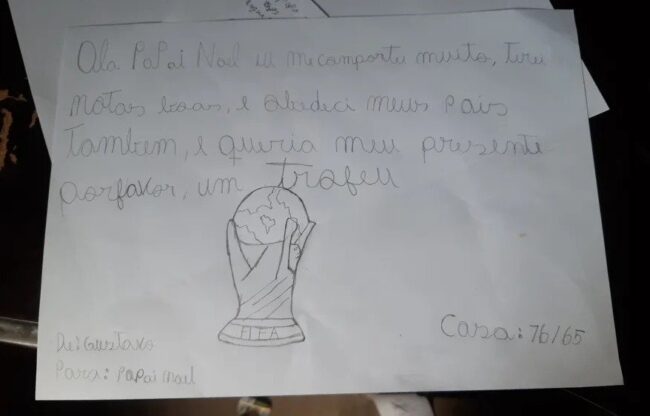 Ola PaPai Noel eu me comportei muito, tirei
notas boas, e obedeci meus pais
Tambem, e queria meu presente
porfavor, um Trofeu
FIFA
Casa: 76/65
De: Gustavo
Para: PaPai Noel